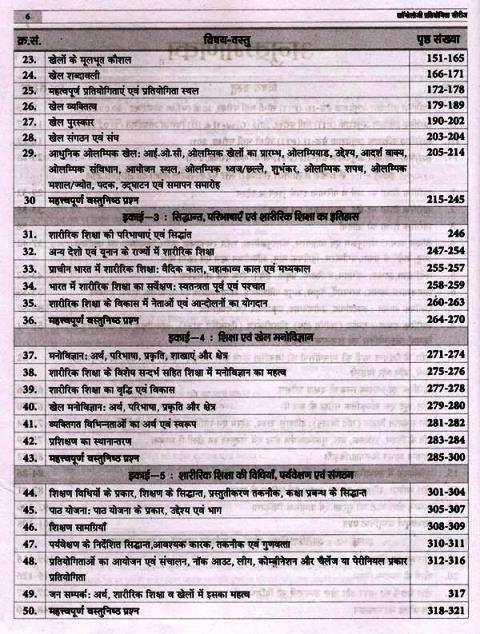 6 क्रॉनोलॉजी प्रतियोगिता सीरीज
क्र.सं. विषय-वस्तु पृष्ठ संख्या
23. खेलों के मूलभूत कौशल 151-165
24. खेल शब्दावली 166-171
25. महत्वपूर्ण प्रतियोगिताएं एवं प्रतियोगिता स्थल 172-178
26. खेल व्यक्तित्व 179-189
27. खेल पुरस्कार 190-202
28. खेल संगठन एवं संघ 203-204
29. आधुनिक ओलम्पिक खेल: आई.ओ.सी, ओलम्पिक खेलों का प्रारम्भ, ओलम्पियाड, उद्देश्य, आदर्श वाक्य, 205-214
ओलम्पिक संविधान, आयोजन स्थल, ओलम्पिक ध्वज/छल्ले, शुभंकर, ओलम्पिक शपथ, ओलम्पिक
मशाल/ज्योत, पदक, उद्घाटन एवं समापन समारोह
30 महत्त्वपूर्ण वस्तुनिष्ठ प्रश्न 215-245
इकाई–3 : सिद्धान्त, परिभाषाएँ एवं शारीरिक शिक्षा का इतिहास
31. शारीरिक शिक्षा की परिभाषाएं एवं सिद्धांत 246
32. अन्य देशो एवं यूनान के राज्यों में शारीरिक शिक्षा 247-254
33. प्राचीन भारत में शारीरिक शिक्षा: वैदिक काल, महाकाव्य काल एवं मध्यकाल 255-257
34. भारत में शारीरिक शिक्षा का सर्वेक्षण: स्वतन्त्रता पूर्व एवं पश्चात 258-259
35. शारीरिक शिक्षा के विकास में नेताओं एवं आन्दोलनों का योगदान 260-263
36. महत्त्वपूर्ण वस्तुनिष्ठ प्रश्न 264-270
इकाई–4 : शिक्षा एवं खेल मनोविज्ञान
37. मनोविज्ञान: अर्थ, परिभाषा, प्रकृति, शाखाएं और क्षेत्र 271-274
38. शारीरिक शिक्षा के विशेष सन्दर्भ सहित शिक्षा में मनोविज्ञान का महत्व 275-276
39. शारीरिक शिक्षा का वृद्धि एवं विकास 277-278
40. खेल मनोविज्ञान: अर्थ, परिभाषा, प्रकृति और क्षेत्र 279-280
41. व्यक्तिगत विभिन्नताओं का अर्थ एवं स्वरूप 281-282
42. प्रशिक्षण का स्थानान्तरण 283-284
43. महत्त्वपूर्ण वस्तुनिष्ठ प्रश्न 285-300
इकाई–5 : शारीरिक शिक्षा की विधियाँ, पर्यवेक्षण एवं संगठन
44. शिक्षण विधियों के प्रकार, शिक्षण के सिद्धान्त, प्रस्तुतीकरण तकनीक, कक्षा प्रबन्ध के सिद्धान्त 301-304
45. पाठ योजना: पाठ योजना के प्रकार, उद्देश्य एवं भाग 305-307
46. शिक्षण सामग्रियाँ 308-309
47. पर्यवेक्षण के निर्देशित सिद्धान्त,आवश्यक कारक, तकनीक एवं गुणवत्ता 310-311
48. प्रतियोगिताओं का आयोजन एवं संचालन, नॉक आउट, लीग, कोम्बीनेशन और चैलेंज या पेरीनियल प्रकार 312-316
प्रतियोगिता
49. जन सम्पर्क: अर्थ, शारीरिक शिक्षा व खेलों में इसका महत्व 317
50. महत्त्वपूर्ण वस्तुनिष्ठ प्रश्न 318-321